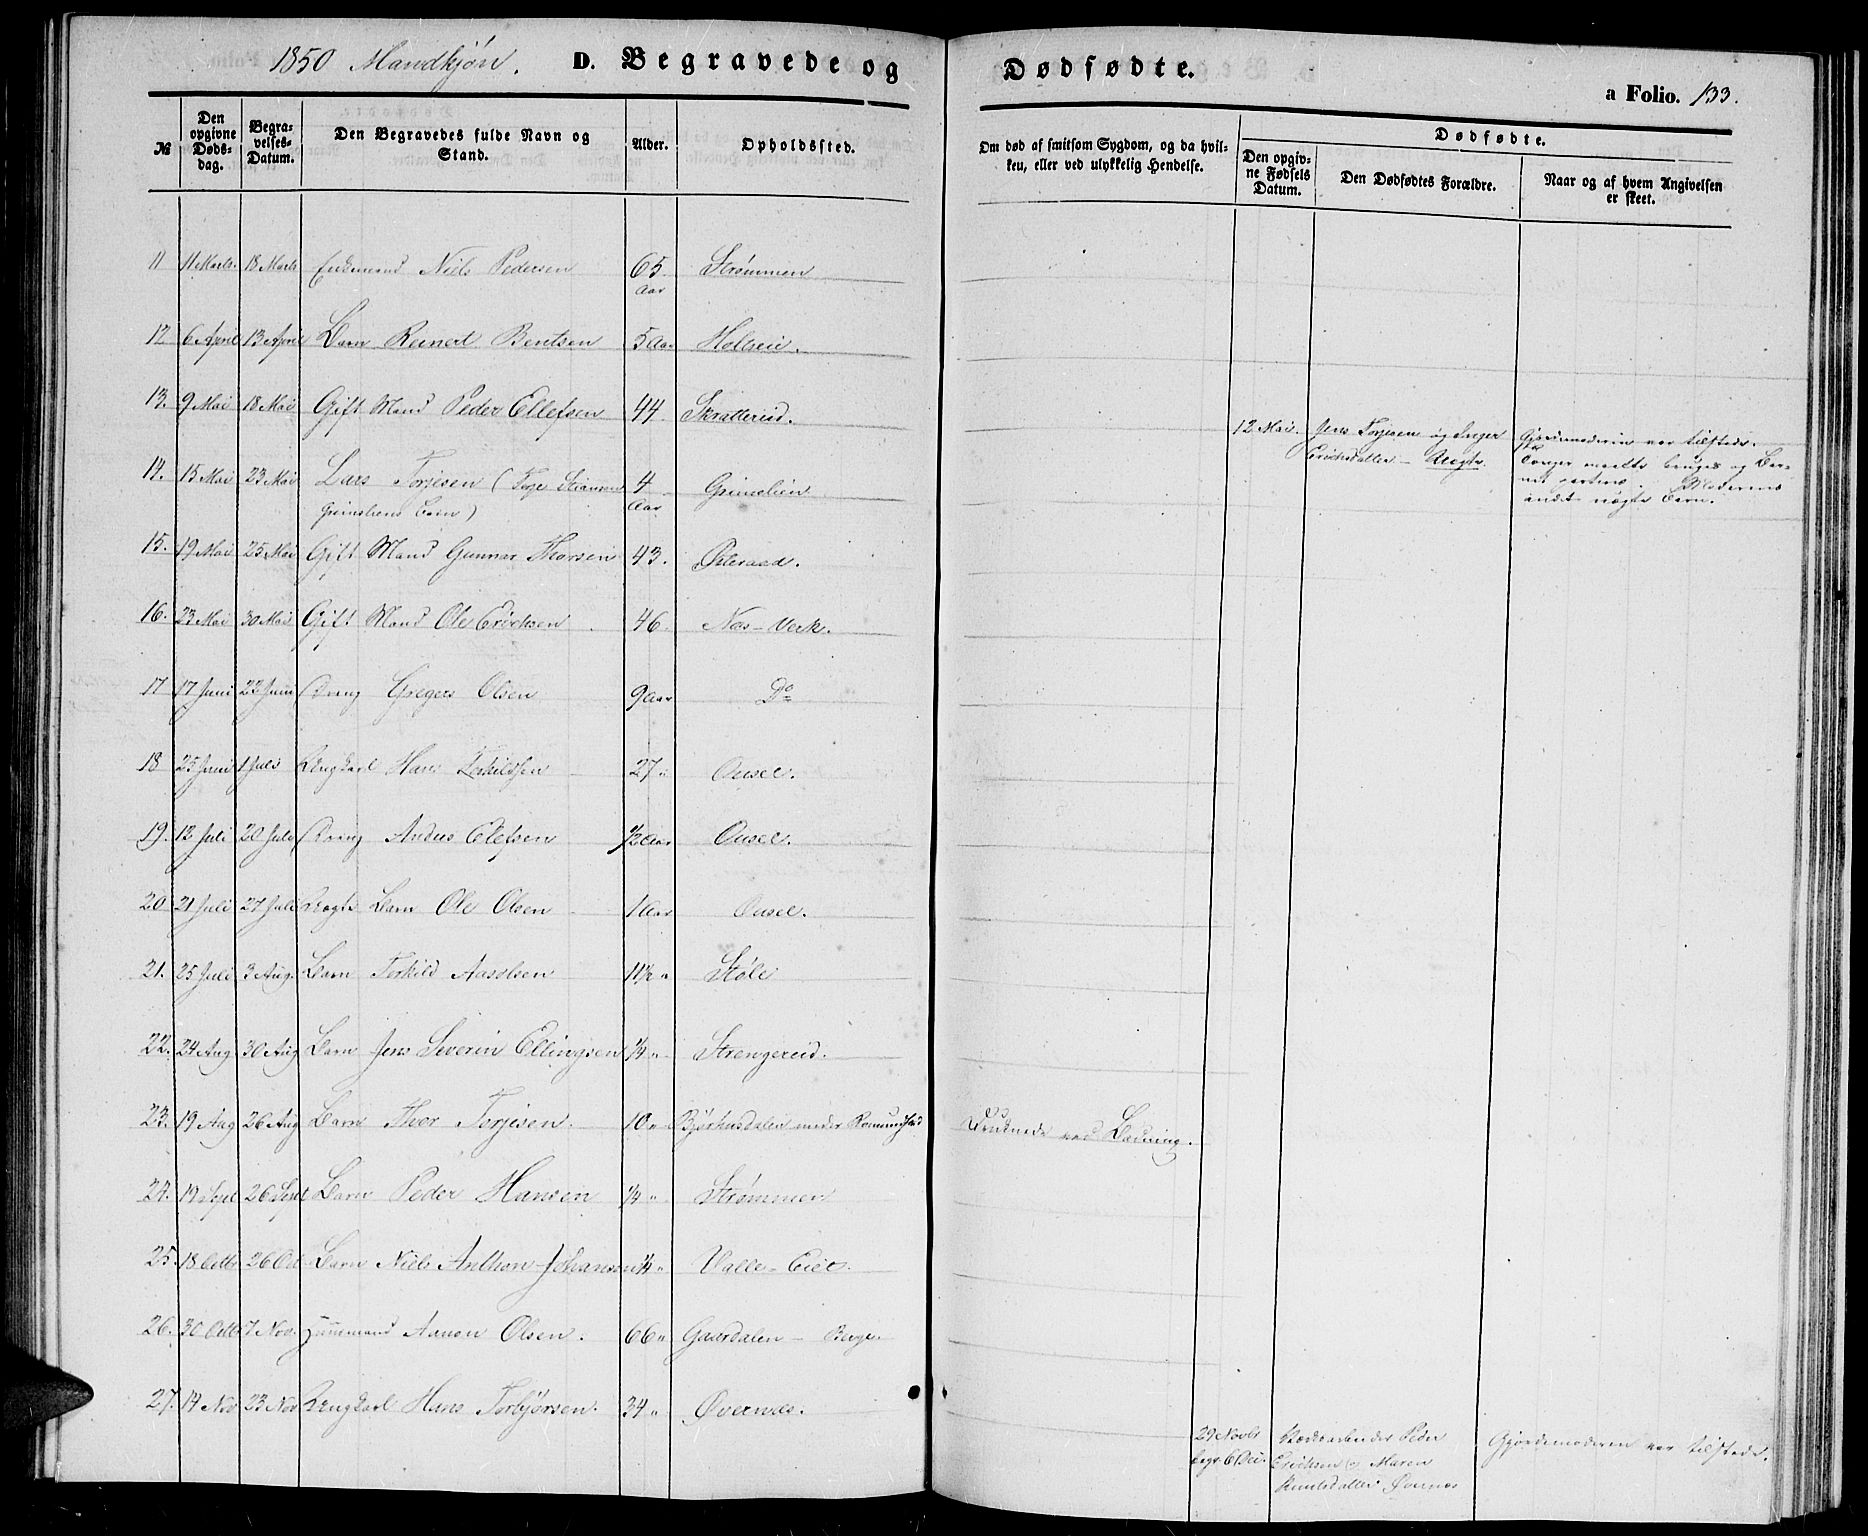 1850 Mandkjøn. D. Begravede og Dødfødte.
a Folio. 133.
№ Den opgivne Døds-dag. Begra-velses-Datum. Den Begravedes fulde Navn og Stand. Alder. Opholdssted. Om død af smitsom Sygdom, og da hvil-ken, eller ved ulykkelig Hendelse. Dødfødte. Den opgiv-ne Fødsels Datum. Den Dødfødtes Forældre. Naar og af hvem Angivelsen er skeet.
11 11 Marts. 18 Marts Enkemand Niels Pedersen 65 Aar Strømmen
12 6 April 13 April Barn Reinert Bentsen 5 Aar Holtreie.
13. 9 Mai 18 Mai Gift Mand Peder Ellefsen 44 Skratlereid.
12 Mai. Jens Torjesen og Inger Erichsdatter Gjordemoderen var tilstede.
14. 15 Mai 23 Mai Lars Torjesen (Torje
Grimeliens Barn) 4 Aar Grimelien
15. 19 Mai 25 Mai Gift Mand Gunnar Thorsen 43. Østeraad.
16. 23 Mai 30 Mai Gift Mand Ole Erichsen 46. Næs-Verk.
17 17 Juni 22 Juni Dreng Gregers Olsen 9 Aar Do
18 25 Juni 1 Juli Ungkarl Hans Terkildsen 27 " Ousel.
19. 12 Juli 20 Juli Dreng Anders Elefsen 1/2 Aar Ousel.
20 21 Juli 27 Juli Uægte Barn Ole Olsen 1 Aar Ousel.
21. 25 Juli 3 Aug. Barn Terkild Aasolsen 11 1/2 " Støle
22. 24 Aug 30 Aug Barn Jens Severin Ellingsen 1/4 " Strengereid.
23. 19 Aug 26 Aug Barn Thor Torjesen. 10 " Bjørhusdalen under Romundstad Druknede ved Badning.
24. 19 Sept 26 Sept Barn Peder Hansen 1/4 " Strømmen
25. 18 Octbr 26 Oct Barn Niels Anthon Johansen 1/4 " Valle-Eiet.
26. 30 Octbr 7 Nov. Huusmand Aanon Olsen. 66 " Gaardalen - Berge.
27. 14 Nov 23 Nov Ungkarl Hans Torbjørsen. 34 " Øvernæs.
29 Novbr begr. 6 Dec. Peder Erichsen og Maren Knutsdatter Øvernæs Gjordemoderen var tilstede.